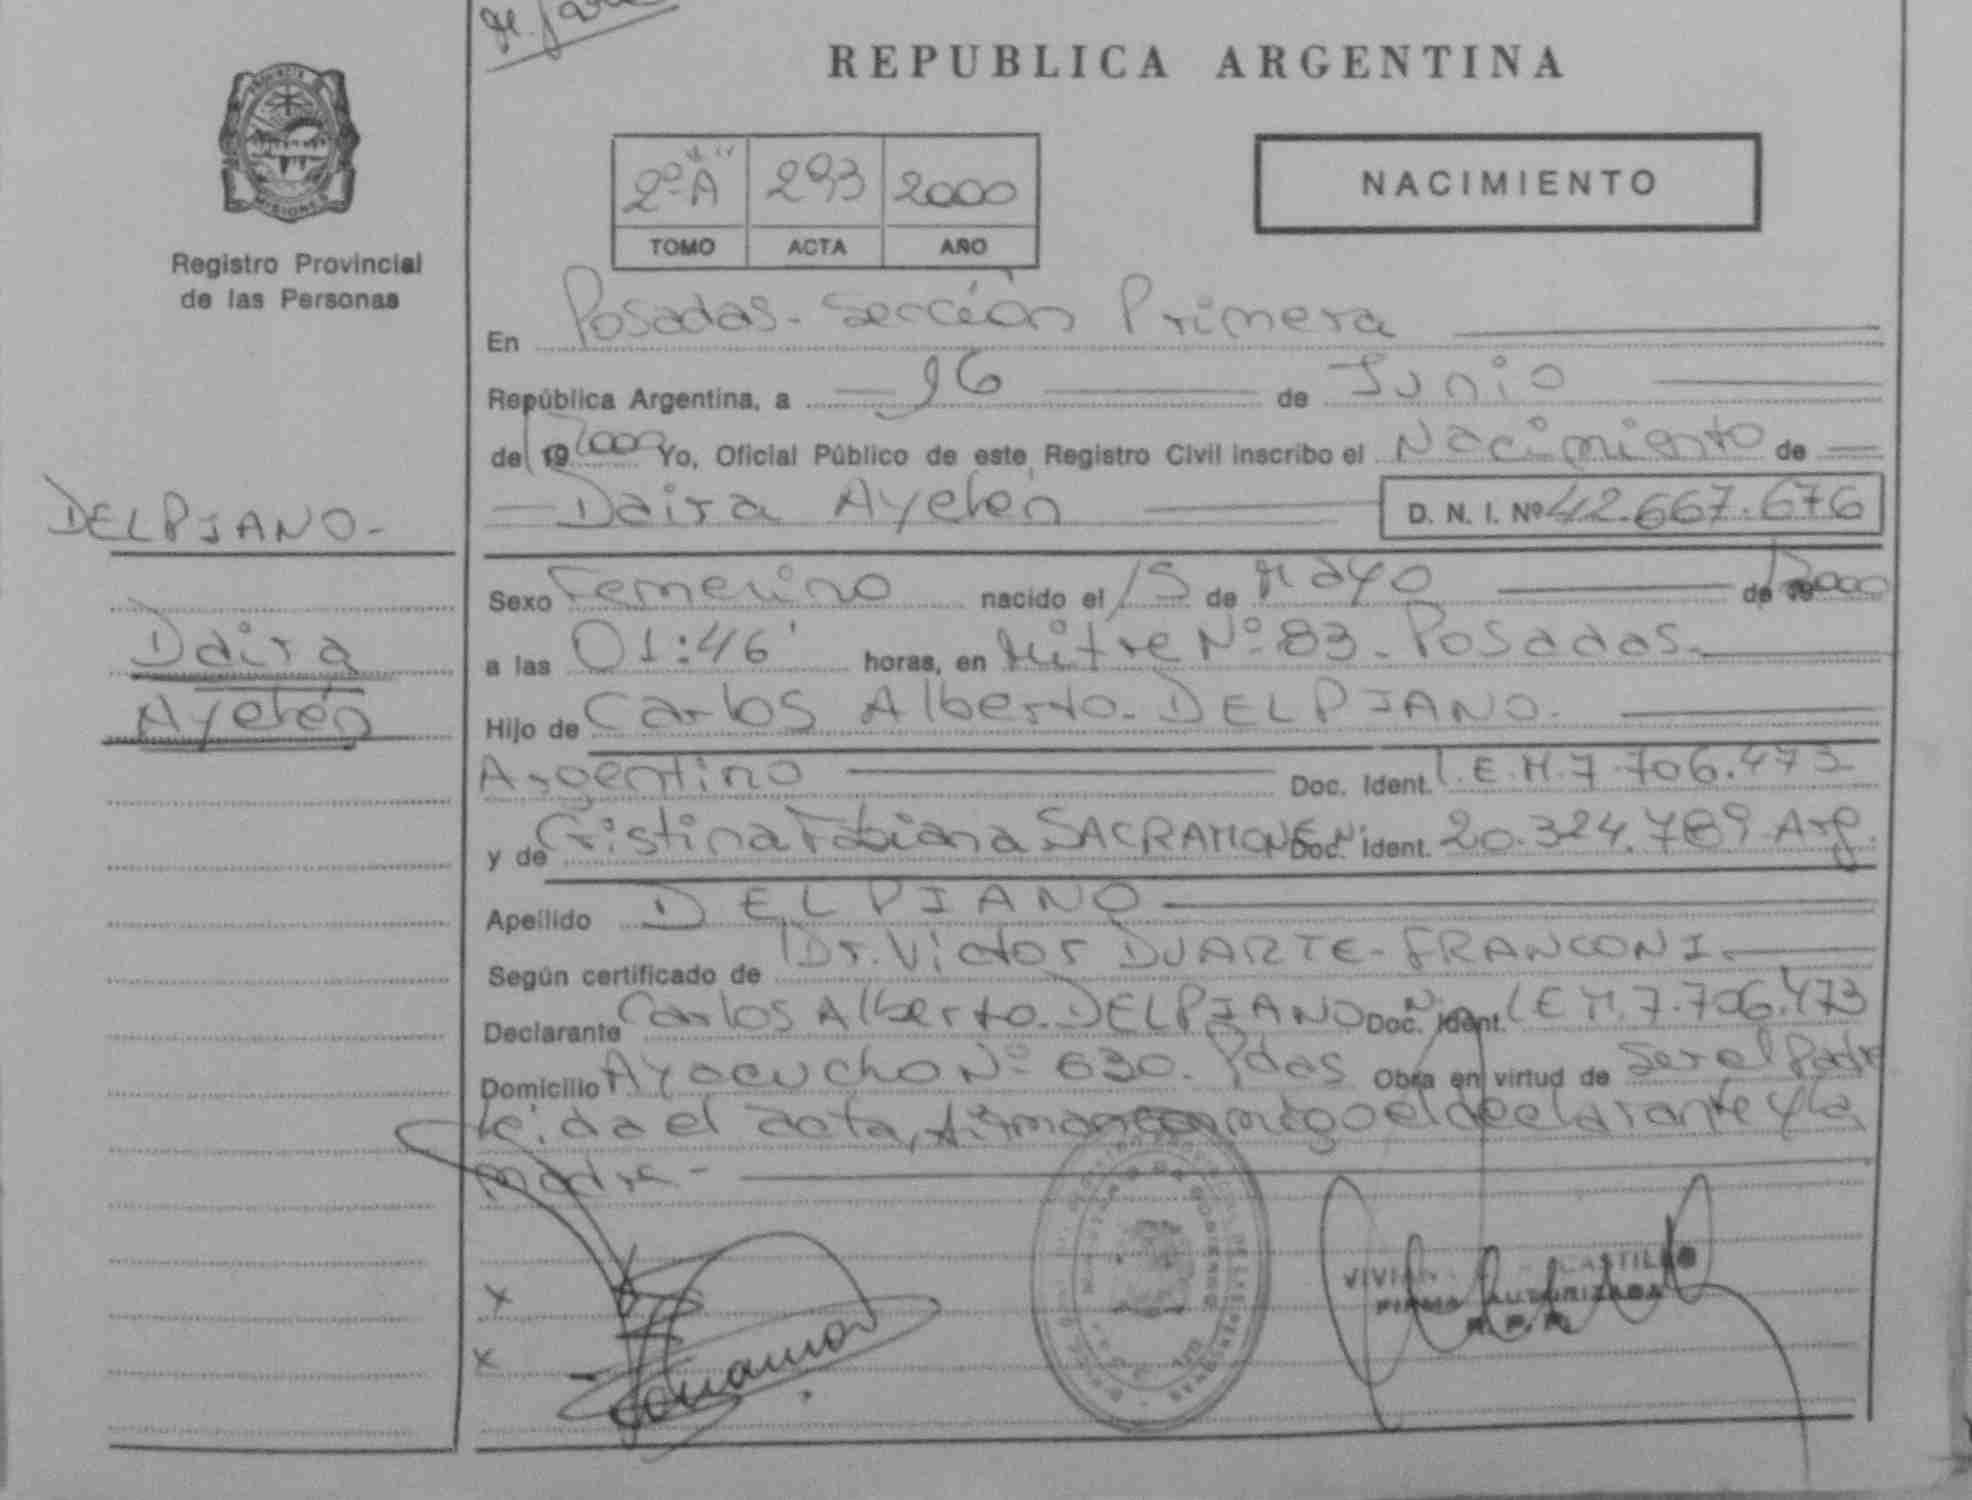 REPUBLICA ARGENTINA
MISIONES
Registro Provincial
de las Personas
2º "A" 293 2000
TOMO ACTA AÑO
NACIMIENTO
En Posadas - Sección Primera
República Argentina, a 16 de Junio
de 19 2000 Yo, Oficial Público de este Registro Civil inscribo el Nacimiento de
Daira Ayelén D. N. I. Nº 42.667.676
DELPIANO-
Daira
Ayelén
Sexo Femenino nacido el 15 de Mayo de 19 2000
a las 01:46' horas, en Mitre Nº 83 - Posadas.
Hijo de Carlos Alberto - DELPIANO.
Argentino Doc. Ident. L.E.M. 7.706.473
y de Cristina Fabiana SACRAMONE Doc. Ident. 20.324.789 Arg.
Apellido DELPIANO
Según certificado de Dr. Victor DUARTE - FRANCONI.
Declarante Carlos Alberto DELPIANO Doc. Ident. LEM. 7.706.473
Domicilio Ayacucho Nº 630. Pdas Obra en virtud de ser el Padre
Leida el acta, firma conmigo el declarante y la
madre -
x
x
CASTILLO
FIRMA AUTORIZADA